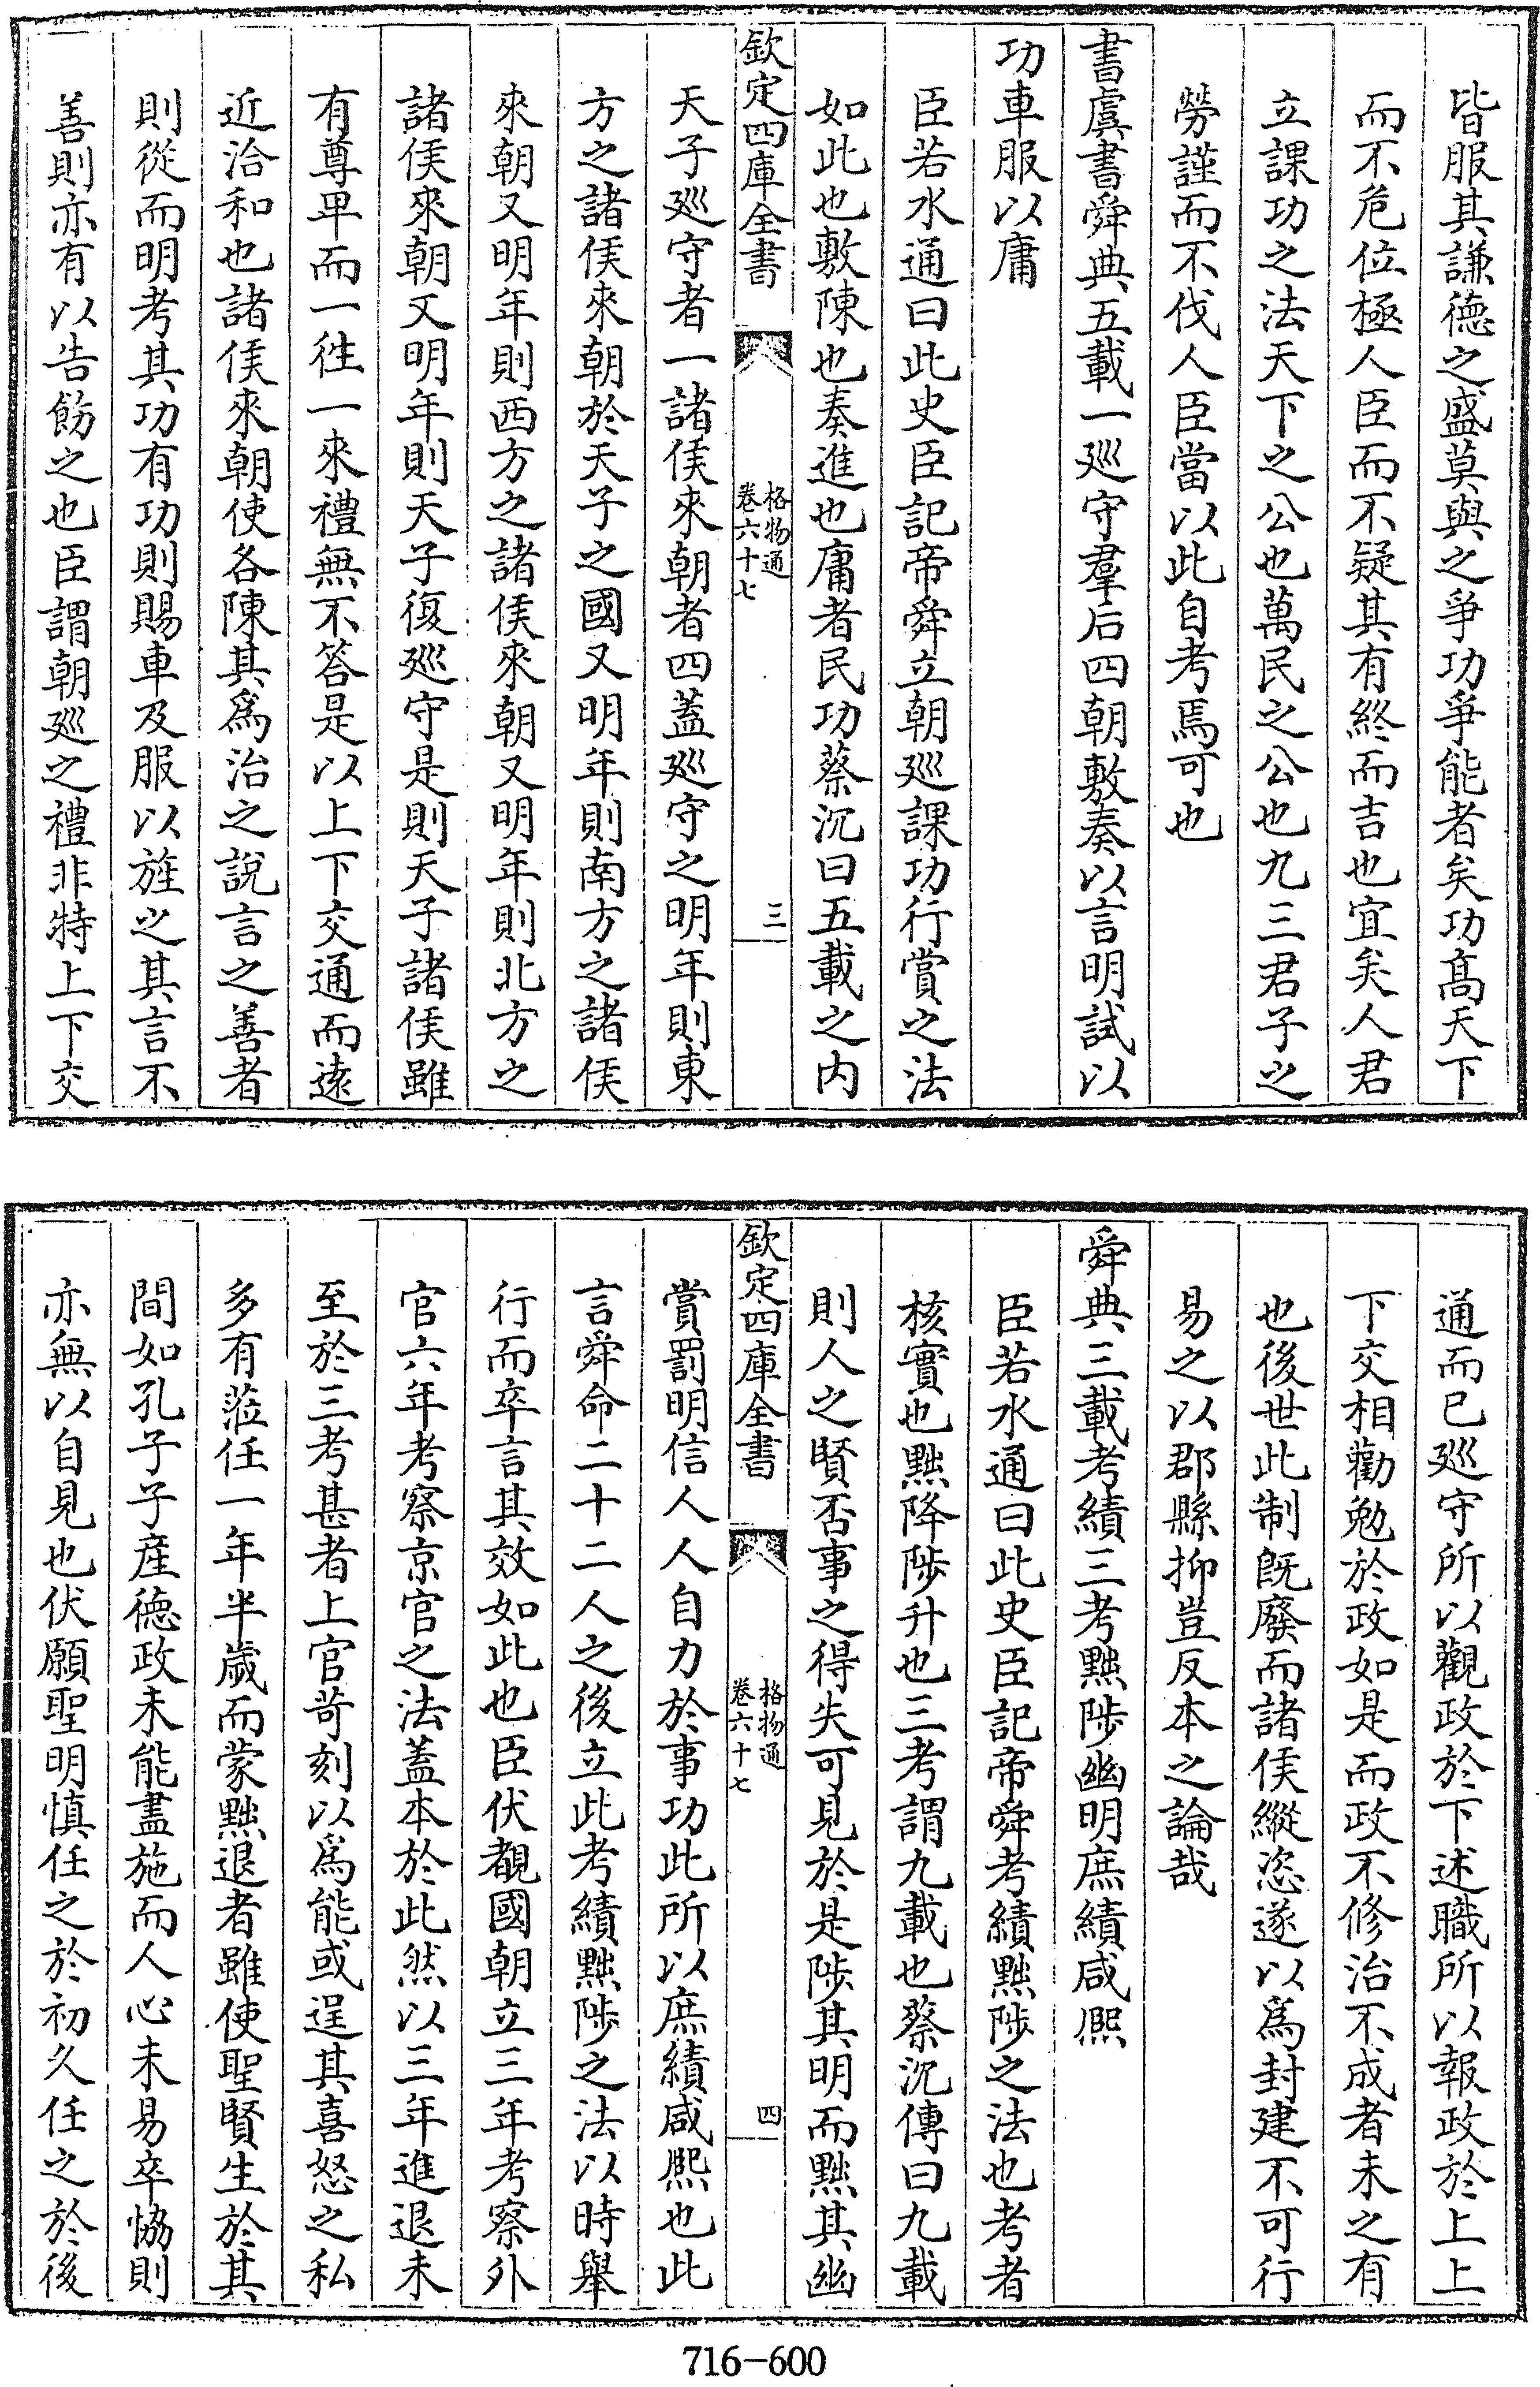 皆服其謙德之盛莫與之爭功爭能者矣功髙天下
而不危位極人臣而不疑其有終而吉也宜矣人君
立課功之法天下之公也萬民之公也九三君子之
勞謹而不伐人臣當以此自考焉可也
書虞書舜典五載一廵守羣后四朝敷奏以言明試以
功車服以庸
臣若水通曰此史臣記帝舜立朝廵課功行賞之法
如此也敷陳也奏進也庸者民功蔡沉曰五載之内
欽定四庫全書
格物通
卷六十七
三
天子廵守者一諸侯來朝者四蓋廵守之明年則東
方之諸侯來朝於天子之國又明年則南方之諸侯
來朝又明年則西方之諸侯來朝又明年則北方之
諸侯來朝又明年則天子復廵守是則天子諸侯雖
有尊卑而一徃一來禮無不答是以上下交通而逺
近洽和也諸侯來朝使各陳其爲治之說言之善者
則從而明考其功有功則賜車及服以旌之其言不
善則亦有以告飭之也臣謂朝廵之禮非特上下交
通而已廵守所以觀政於下述職所以報政於上上
下交相勸勉於政如是而政不修治不成者未之有
也後世此制旣廢而諸侯縱恣遂以爲封建不可行
易之以郡縣抑豈反本之論哉
舜典三載考績三考黜陟幽明庶績咸熙
臣若水通曰此史臣記帝舜考績黜陟之法也考者
核實也黜降陟升也三考謂九載也蔡沉傳曰九載
則人之賢否事之得失可見於是陟其明而黜其幽
欽定四庫全書
格物通
卷六十七
四
賞罰明信人人自力於事功此所以庶績咸熙也此
言舜命二十二人之後立此考績黜陟之法以時舉
行而卒言其效如此也臣伏覩國朝立三年考察外
官六年考察京官之法蓋本於此然以三年進退未
至於三考甚者上官苛刻以爲能或逞其喜怒之私
多有蒞任一年半歳而蒙黜退者雖使聖賢生於其
間如孔子子産德政未能盡施而人心未易卒恊則
亦無以自見也伏願聖明慎任之於初久任之於後
716-600